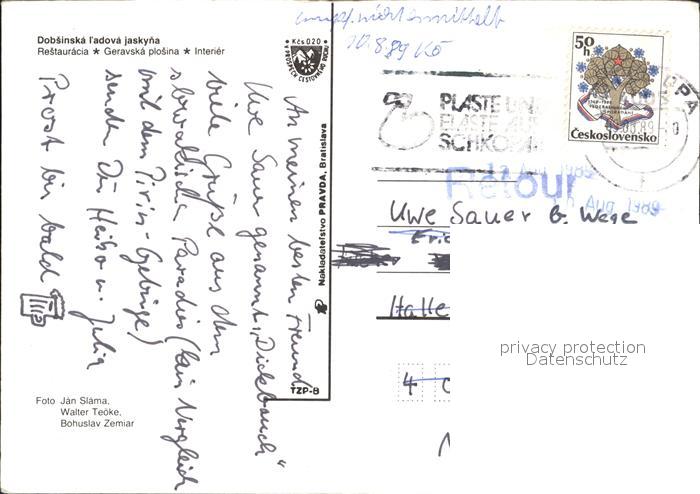 Dobšinská ľadová jaskyňa
Reštaurácia ★ Geravská plošina ★ Interiér
Kčs 0 20
V PROSPECH CESTOVNÉHO RUCHU
An meinen besten Freund
Uwe Sauer genannt „Dickbauch“
viele Grüße aus dem
slowakischen Paradies (kein Vergleich
mit dem Pirin-Gebirge)
sendn Dir Heiko u. Julia
Prost bis bald
Nakladateľstvo PRAVDA, Bratislava
TZP-8
Foto Ján Sláma,
Walter Teöke,
Bohuslav Zemiar
10.8.89 Kö
PLASTE UN
ELASTE AUS
SCHKOPA
50h
Československo
Retour
Aug 1989
Uwe Sauer b. Wege
Halle
4
privacy protection
Datenschutz